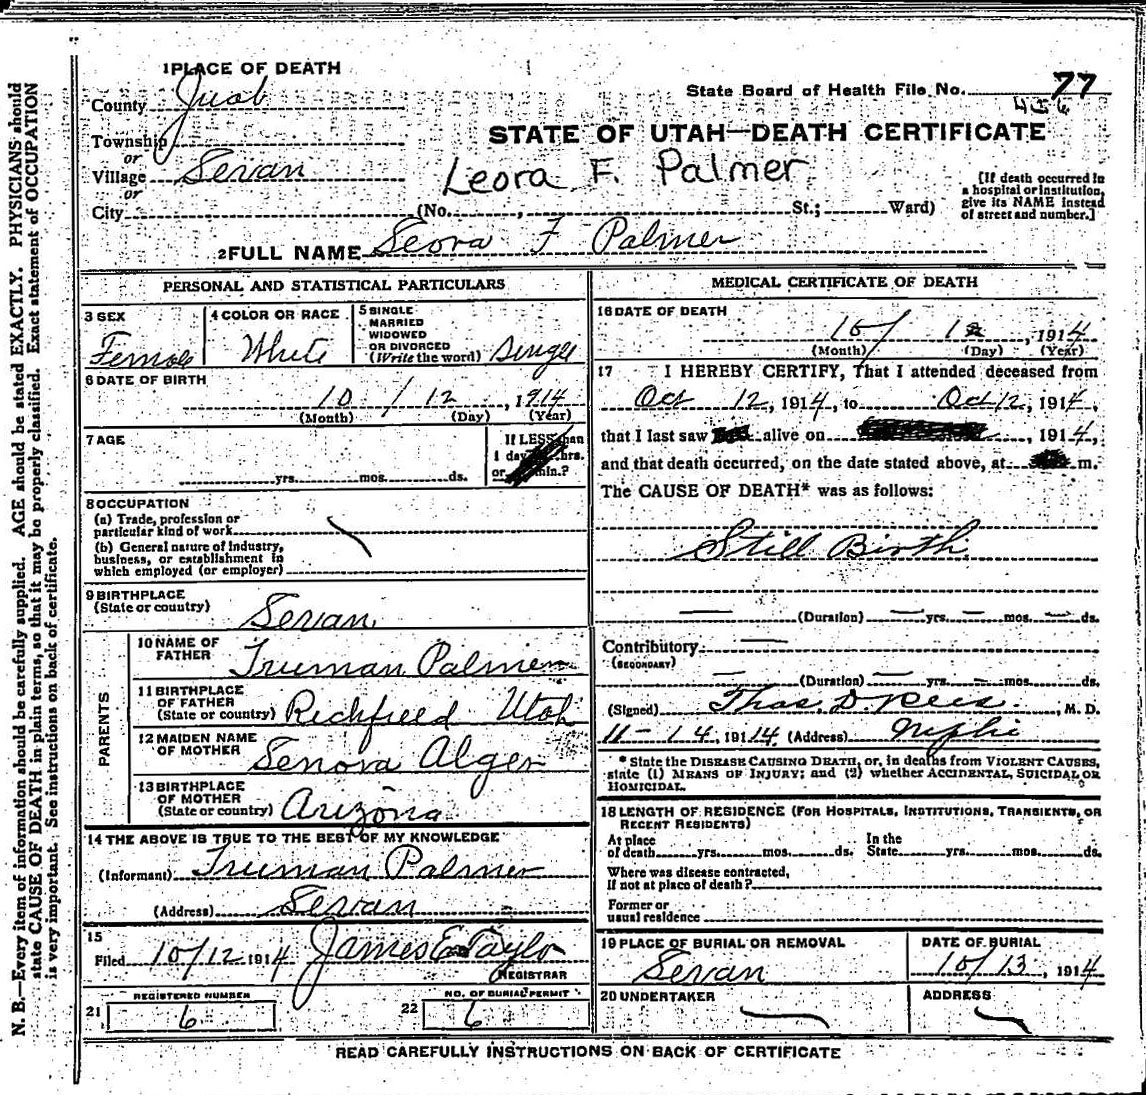 1 PLACE OF DEATH
County Juab
State Board of Health File No. 77
456
Township
or
Village Sevan
or
City (No. , St.; Ward)
STATE OF UTAH—DEATH CERTIFICATE
Leora F. Palmer
[If death occurred in a hospital or institution, give its NAME instead of street and number.]
2 FULL NAME Leora F Palmer
PERSONAL AND STATISTICAL PARTICULARS
3 SEX
Female
4 COLOR OR RACE
White
5 SINGLE
MARRIED
WIDOWED
OR DIVORCED
(Write the word) Single
6 DATE OF BIRTH
10 / 12, 1914
(Month) (Day) (Year)
7 AGE
yrs. mos. ds.
If LESS than
1 day hrs.
or min.?
8 OCCUPATION
(a) Trade, profession or
particular kind of work
(b) General nature of industry,
business, or establishment in
which employed (or employer)
9 BIRTHPLACE
(State or country) Sevan
PARENTS
10 NAME OF
FATHER Truman Palmer
11 BIRTHPLACE
OF FATHER
(State or country) Richfield Utah
12 MAIDEN NAME
OF MOTHER Senora Alger
13 BIRTHPLACE
OF MOTHER
(State or country) Arizona
14 THE ABOVE IS TRUE TO THE BEST OF MY KNOWLEDGE
(Informant) Truman Palmer
(Address) Sevan
15
Filed 10/12 1914 James E Taylor
REGISTRAR
REGISTERED NUMBER
21 6
NO. OF BURIAL PERMIT
22 6
MEDICAL CERTIFICATE OF DEATH
16 DATE OF DEATH
10/ 12, 1914
(Month) (Day) (Year)
17 I HEREBY CERTIFY, That I attended deceased from
Oct 12, 1914, to Oct 12, 1914,
that I last saw alive on , 1914,
and that death occurred, on the date stated above, at m.
The CAUSE OF DEATH* was as follows:
Still Birth
(Duration) yrs. mos. ds.
Contributory
(SECONDARY)
(Duration) yrs. mos. ds.
(Signed) Thos. D. Rees, M. D.
11-14, 19114. (Address) Nephi
* State the DISEASE CAUSING DEATH, or, in deaths from VIOLENT CAUSES,
state (1) MEANS OF INJURY; and (2) whether ACCIDENTAL, SUICIDAL OR
HOMICIDAL.
18 LENGTH OF RESIDENCE (FOR HOSPITALS, INSTITUTIONS, TRANSIENTS, OR
RECENT RESIDENTS)
At place
of death yrs. mos. ds.
In the
State yrs. mos. ds.
Where was disease contracted,
if not at place of death?
Former or
usual residence
19 PLACE OF BURIAL OR REMOVAL
Sevan
DATE OF BURIAL
10/13, 1914
20 UNDERTAKER
ADDRESS
READ CAREFULLY INSTRUCTIONS ON BACK OF CERTIFICATE
N. B.—Every item of information should be carefully supplied. AGE should be stated EXACTLY. PHYSICIANS should
state CAUSE OF DEATH in plain terms, so that it may be properly classified. Exact statement of OCCUPATION
is very important. See instructions on back of certificate.